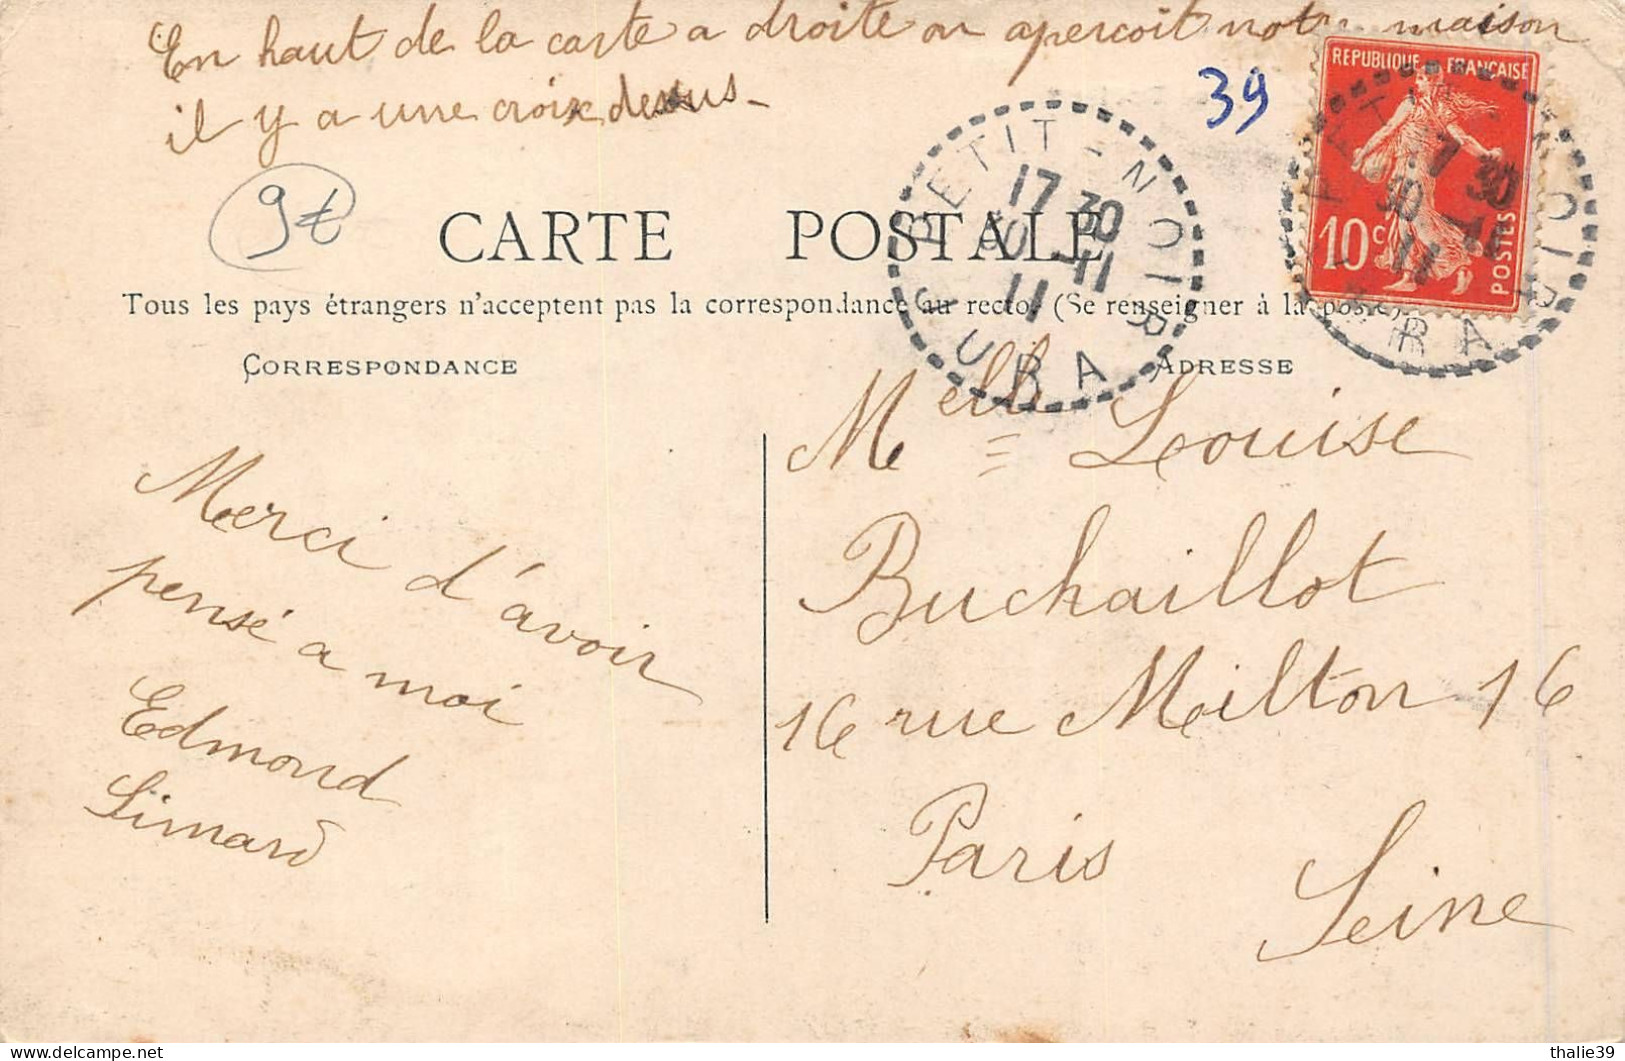 En haut de la carte a droite on apercoit notre maison
il y a une croix dessus -
39
9€
RÉPUBLIQUE FRANÇAISE
10c POSTES
PETIT-NOIR
17 30
30 -11
11
JURA
7 30
30 -11
11
CARTE POSTALE
Tous les pays étrangers n'acceptent pas la correspondance au recto. (Se renseigner à la poste)
CORRESPONDANCE
ADRESSE
Merci d'avoir
pensé a moi
Edmond
Simard
Melle Louise
Buchaillot
16 rue Milton 16
Paris
Seine
delcampe.net
thalie39